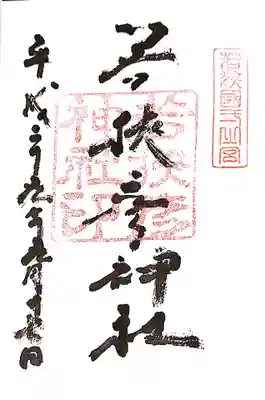 若狭國一之宮
若狭彦神社
若狭彦
神社印
平成二十九年九月十七日